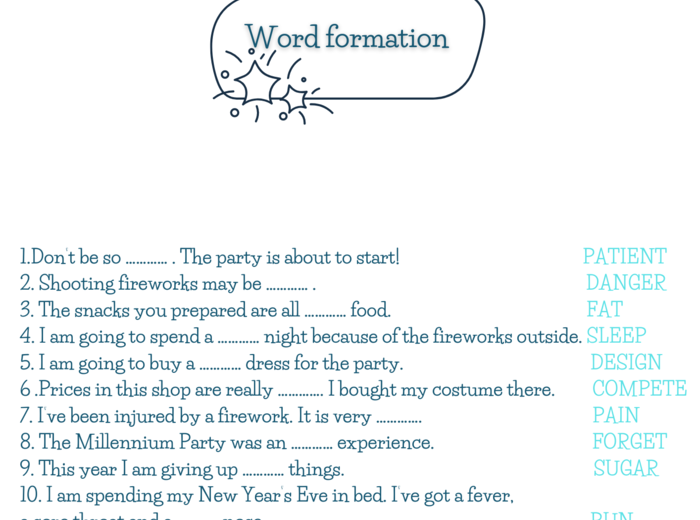 Word formation
1.Don't be so ............ . The party is about to start! PATIENT
2. Shooting fireworks may be ............ . DANGER
3. The snacks you prepared are all ............ food. FAT
4. I am going to spend a ............ night because of the fireworks outside. SLEEP
5. I am going to buy a ............ dress for the party. DESIGN
6 .Prices in this shop are really ............. I bought my costume there. COMPETE
7. I've been injured by a firework. It is very ............. PAIN
8. The Millennium Party was an ............ experience. FORGET
9. This year I am giving up ............ things. SUGAR
10. I am spending my New Year's Eve in bed. I've got a fever,